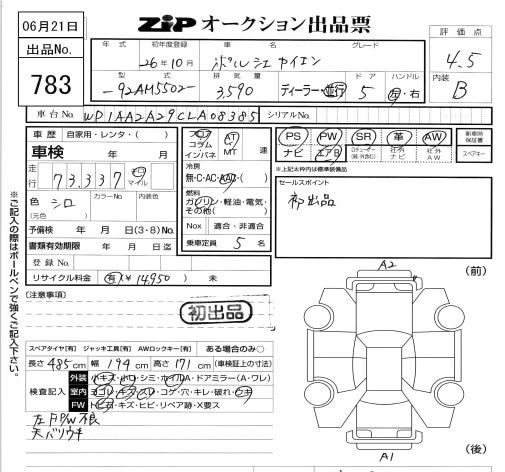 06月21日
ZIP オークション出品票
出品No.
783
年式 初年度登録 車名 グレード
26年10月 ポルシェ カイエン
評価点
4.5
内装
B
型式 排気量 ドア ハンドル
-92AM5502- 3,590 ディーラー・並行 5 左・右
車台No. WP1AA2A29CLA08385 シリアルNo.
車歴 自家用・レンタ・( )
車検 年 月
走行 73,337 キロ マイル
色 シロ カラーNo 内装色
(元色)
予備検 年 月 日(3・8)No.
書類有効期限 年 月 日迄
登録No.
リサイクル料金 (有)¥14,950) 未
フロア コラム インパネ AT MT 速
冷房
無・C・AC・AAC・( )
燃料
ガソリン・軽油・電気・
その他( )
Nox 適合・非適合
乗車定員 5 名
PS PW SR 革 AW
ナビ エアB Dチューナー(純・外含む) 社外ナビ 社外AW
新車時保証書
スペアキー
※上記太枠内は標準装備品
セールスポイント
初出品
※ご記入の際はボールペンで強くご記入下さい。
〔注意事項〕
初出品
スペアタイヤ[有] ジャッキ工具[有] AWロックキー[有] ある場合のみ○
長さ 485 cm 幅 194 cm 高さ 171 cm (車検証上の寸法)
検査記入
外装 小キズ・小凹・シミ・ホイルA・ドアミラー(A・ワレ)
室内 ヨゴレ・キズ・スレ・コゲ・穴・キレ・破れ・ウキ
FW トビ石・キズ・ヒビ・リペア跡・X要ス
左FP/W不良
天バリウキ
A2
(前)
(後)
A1